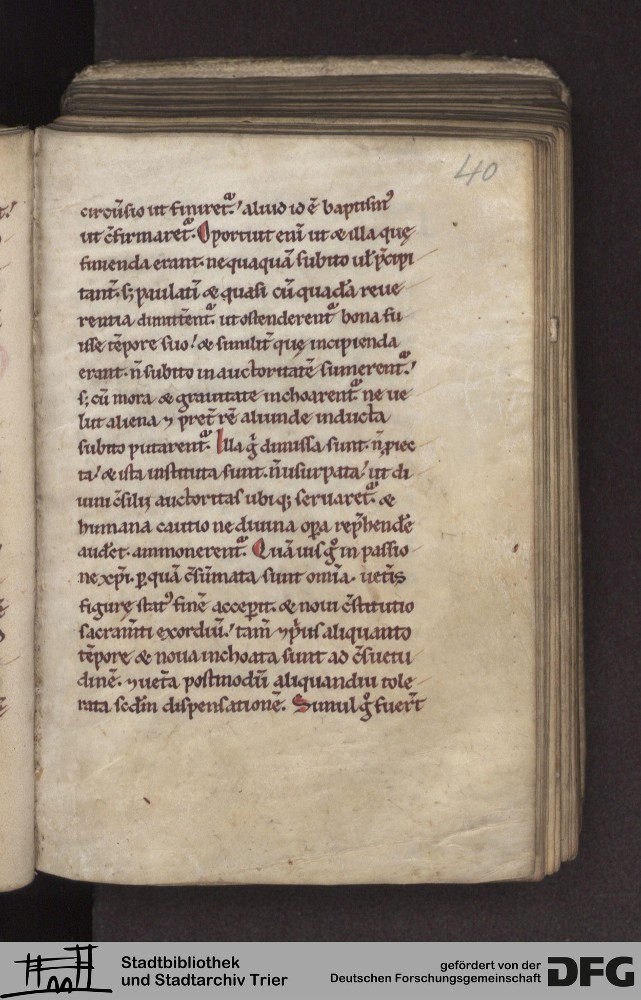 40
circūsio ut finiret᷑. aliud id ē baptism᷒
ut c̄firmaret᷑. Oportuit eni᷒ ut & illa quę
finienda erant. nequaquā subito ul̄ p̄cipi
tant᷑. s; paulati᷒ & quasi cū quadā reue
rentia dimittēnt᷑. ut ostenderent᷑ bona fu
isse tēpore suo. & similit̄ quę incipienda
erant. n̄ subito in auctoritatē sumerent᷑.
s; cū mora & grauitate inchoarent᷑ ne ue
lut aliena ⁊ p̄ter rē aliunde inducta
subito putarent᷑. Illa ḡ dimissa sunt. n̄ piec
ta. & ista instituta sunt. n̄ usurpata. ut di
uini c̄silii auctoritas ubiq; seruaret᷑. &
humana cautio ne diuina opa rep̄hendē
audet. ammonerent᷑. Quāuis g° in passio
ne xp̄i. p quā c̄sūmata sunt omīa. uetīs
figurę stat᷒ finē acceperit. & noui c̄stitutio
sacram̄ti exordiū. tam̄ ⁊ p̄us aliquanto
tēpore & noua inchoata sunt ad c̄suetu
dinē. ⁊ uet̄a postmodū aliquandiu tole
rata sedm̄ dispensationē. Simul g° fuer̄t
Stadtbibliothek
und Stadtarchiv Trier
gefördert von der
Deutschen Forschungsgemeinschaft
DFG